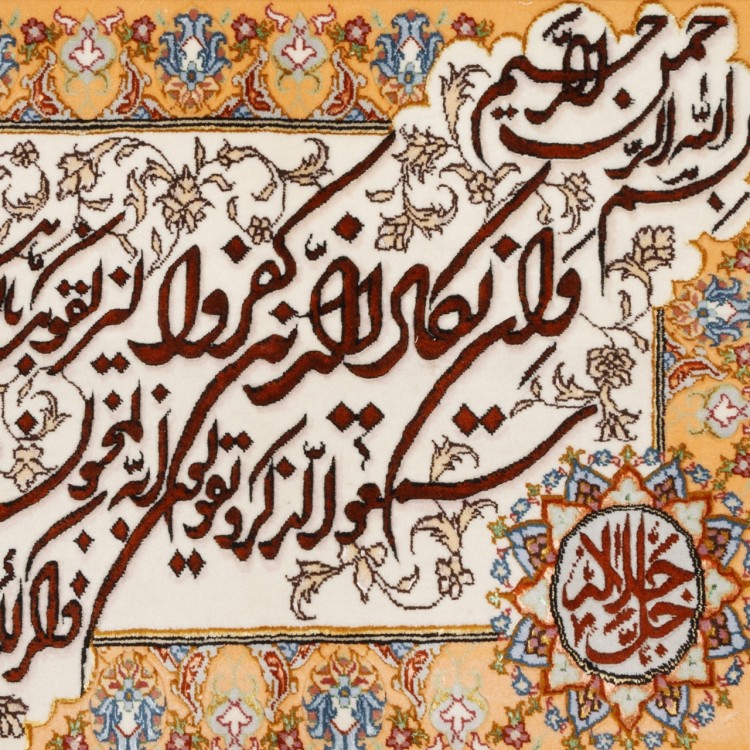 بسم الله الرحمن الرحیم
وان یکاد الذین کفروا لیزلقونک
سمعوا الذکر و یقولون انه لمجنون
جل جلاله